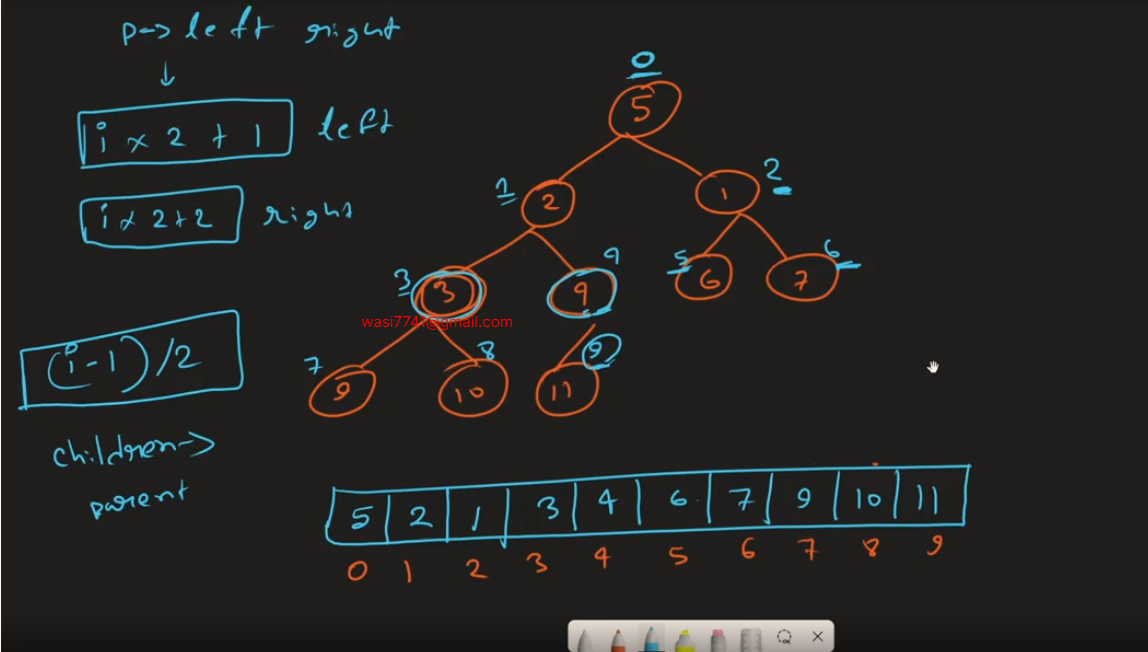 p-> left right
↓
i × 2 + 1 left
i × 2 + 2 right
(i-1)/2
children->
parent
0
5
1
2
2
1
3
3
4
4
5
6
6
7
wasi7741@gmail.com
7
9
8
10
9
11
5 2 1 3 4 6 7 9 10 11
0 1 2 3 4 5 6 7 8 9